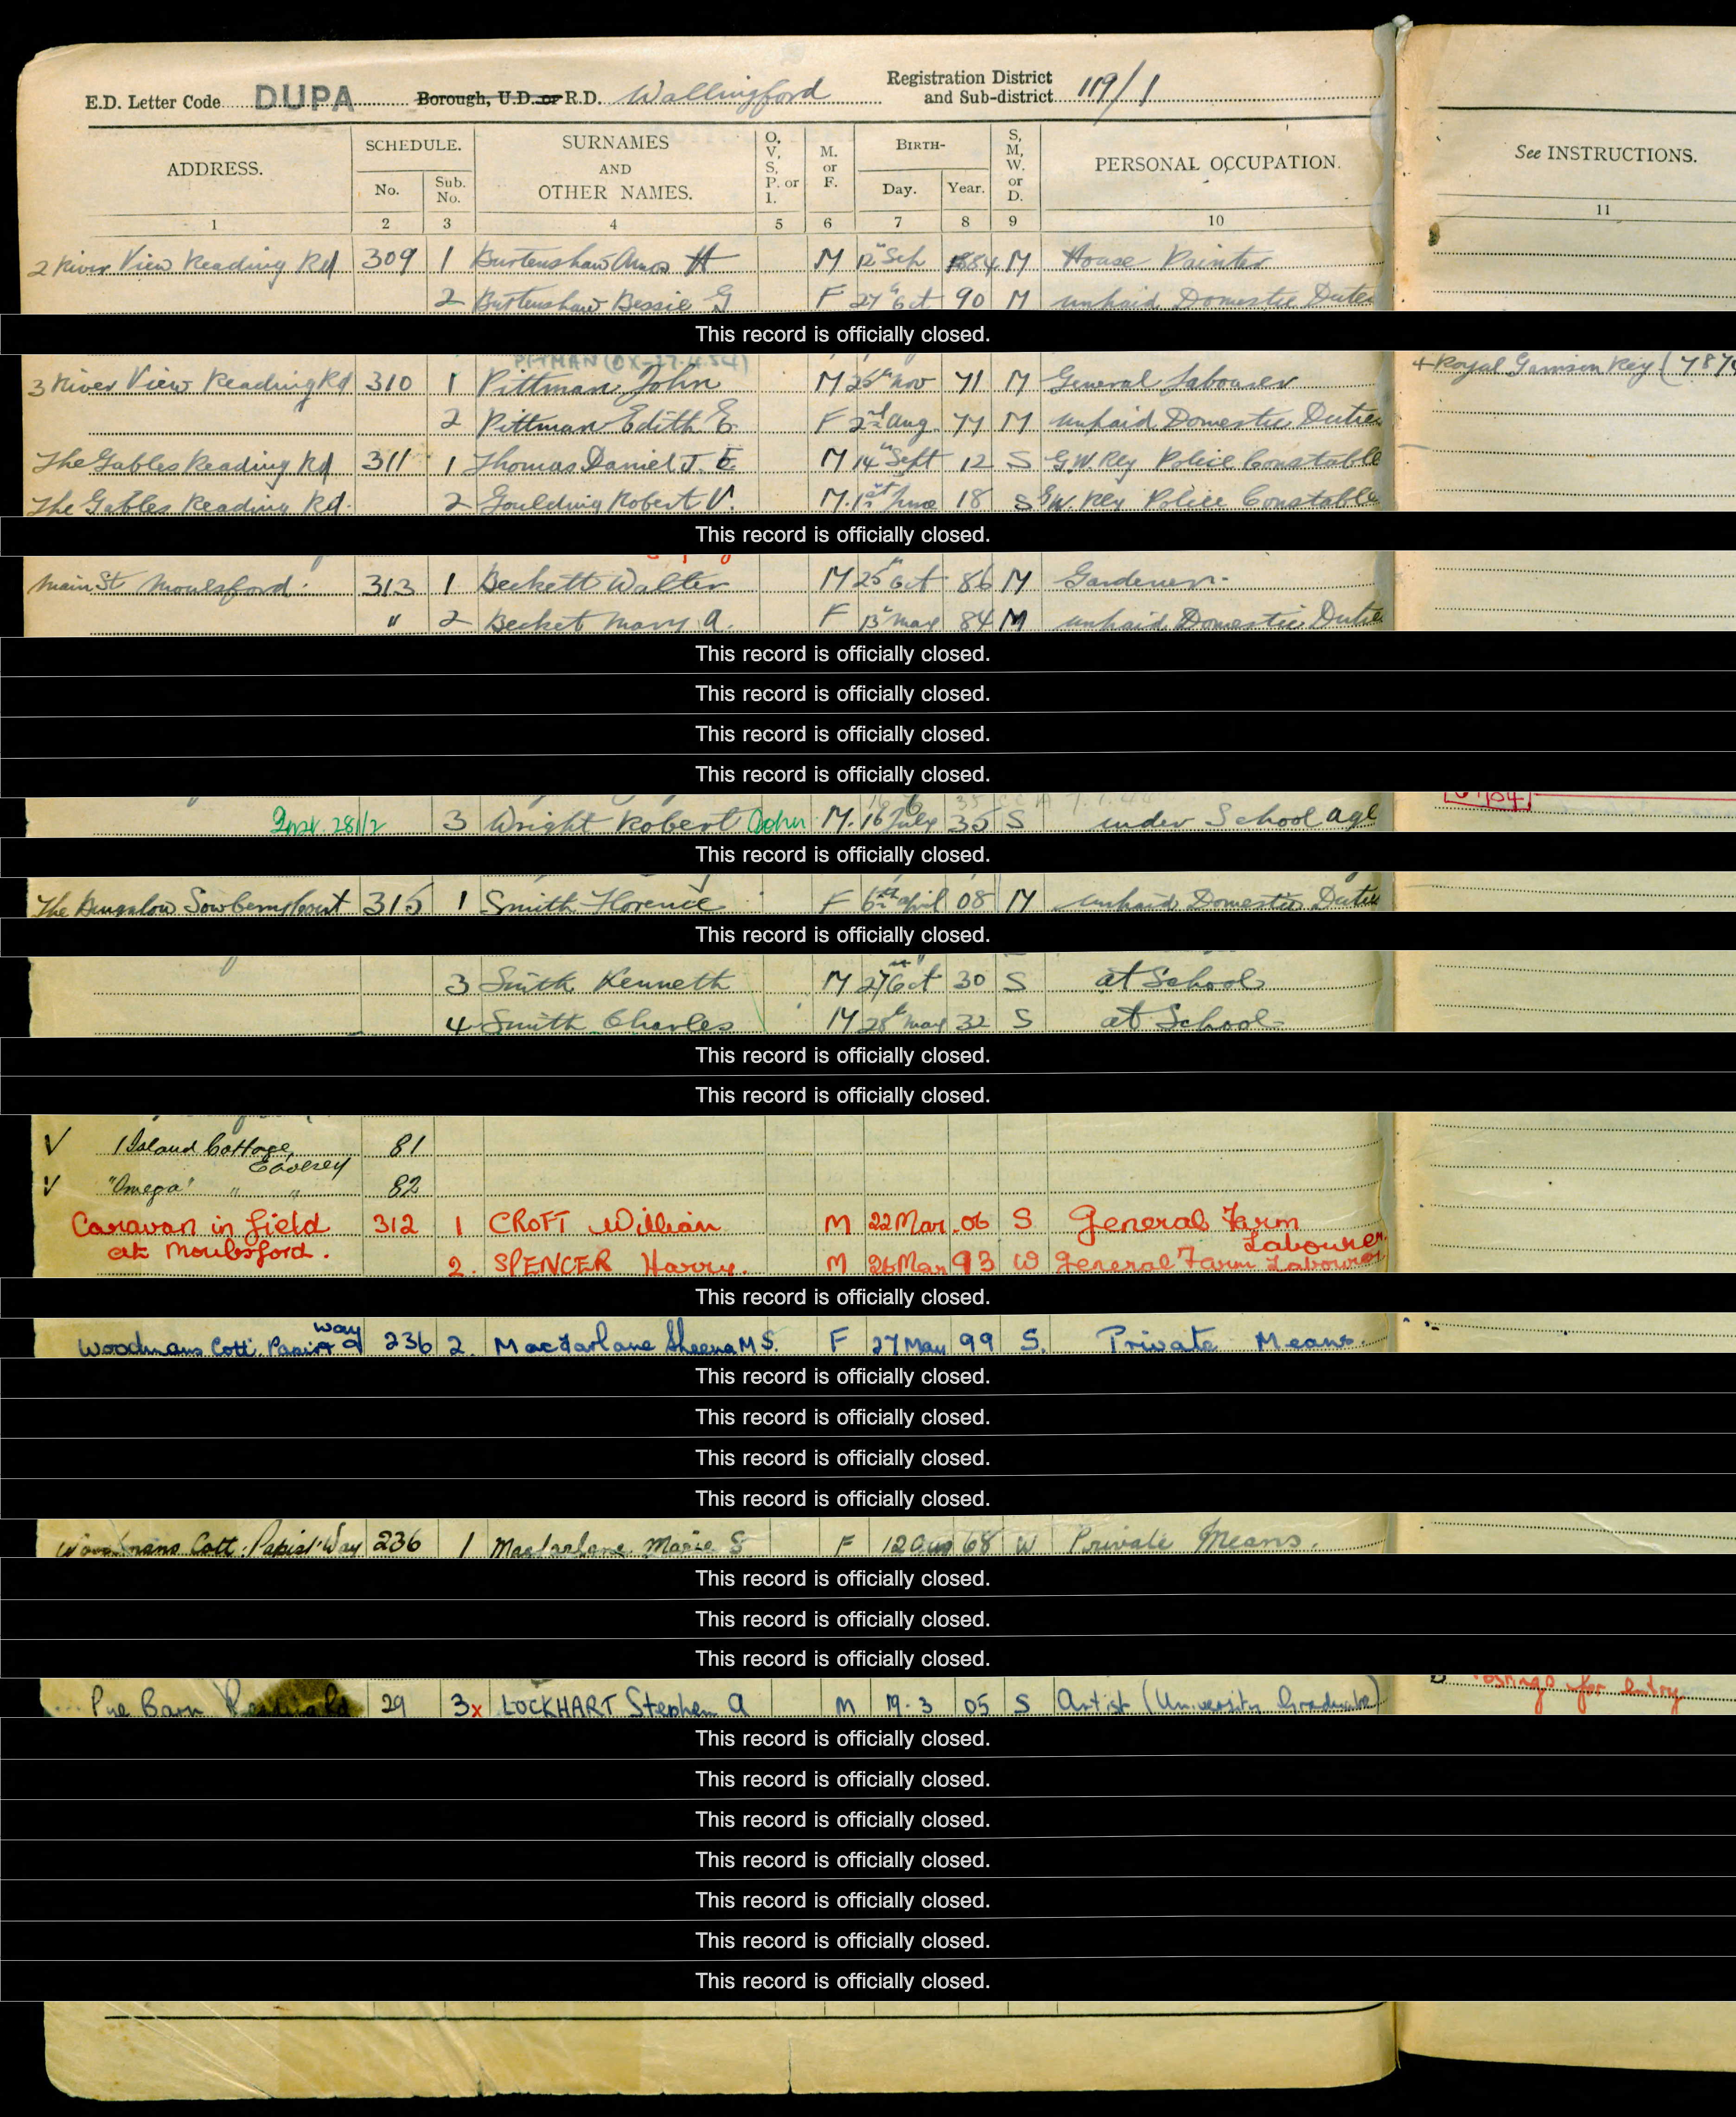 E.D. Letter Code DUPA Borough, U.D. or R.D. Wallingford Registration District and Sub-district 119/1
ADDRESS. SCHEDULE. No. Sub. No. SURNAMES AND OTHER NAMES. O, V, S, P. or I. M. or F. BIRTH- Day. Year. S, M, W. or D. PERSONAL OCCUPATION. See INSTRUCTIONS.
1 2 3 4 5 6 7 8 9 10 11
2 River View Reading Rd 309 1 Burtenshaw Amos H M 12th Sep 1884 M House Painter
2 Burtenshaw Bessie G F 27th Oct 90 M unpaid Domestic Duties
This record is officially closed.
PITMAN (OX-27.4.54)
3 River View Reading Rd 310 1 Pittman John M 25th Nov 71 M General Labourer
2 Pittman Edith E F 2nd Aug 77 M unpaid Domestic Duties
The Gables Reading Rd 311 1 Thomas Daniel J. E M 14th Sept 12 S G.W. Rly Police Constable
The Gables Reading Rd. 2 Goulding Robert V. M. 1st June 18 S G.W. Rly Police Constable
This record is officially closed.
Main St Moulsford. 313 1 Beckett Walter M 25th Oct 86 M Gardener.
" 2 Becket Mary A. F 13th May 84 M unpaid Domestic Duties
This record is officially closed.
This record is officially closed.
This record is officially closed.
This record is officially closed.
3 Wright Robert John M. 16 July 35 S under School age
This record is officially closed.
The Bungalow 315 1 Smith Florence F 6th April 08 M unpaid Domestic Duties
This record is officially closed.
3 Smith Kenneth M 27th Oct 30 S at School
4 Smith Charles M 28th May 32 S at School
This record is officially closed.
This record is officially closed.
√ 1 Island Cottage 81
√ "Omega" " " 82
Caravan in field 312 1 CROFT William M 22 Mar. 06 S General Farm Labourer.
at Moulsford. 2. SPENCER Harry. M 26 Mar 93 W General Farm Labourer
This record is officially closed.
Woodmans Cott. Papist Way 236 2. MacFarlane Sheena M S. F 27 May 99 S. Private Means.
This record is officially closed.
This record is officially closed.
This record is officially closed.
This record is officially closed.
Woodmans Cott. Papist Way 236 1 Macfarlane Marie S F 12 Aug 68 W Private Means.
This record is officially closed.
This record is officially closed.
This record is officially closed.
Barn Reading Rd 29 3x LOCKHART Stephen A M 19.3 05 S Artist (University Graduate) for entry
This record is officially closed.
This record is officially closed.
This record is officially closed.
This record is officially closed.
This record is officially closed.
This record is officially closed.
This record is officially closed.